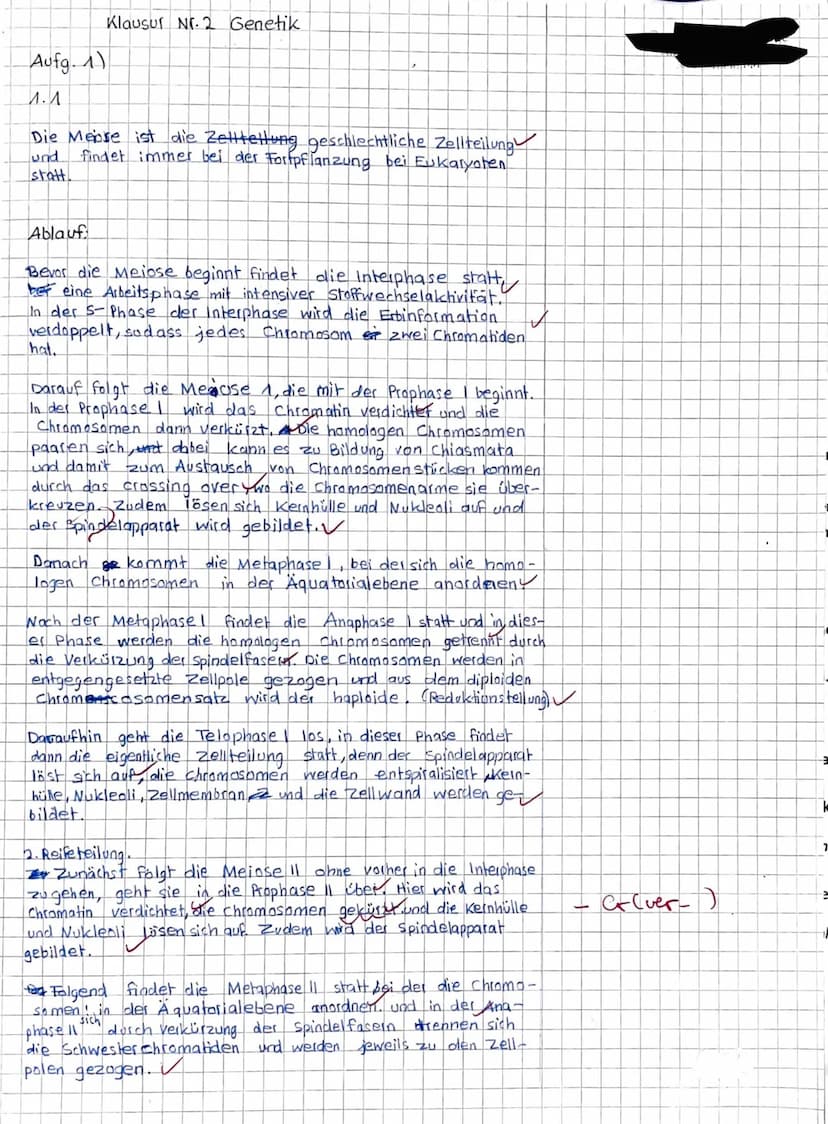 Klausur Nr. 2 Genetik
Aufg. 1)
1.1
Die Meiose ist die Zellteilung geschlechtliche Zellteilung
und findet immer bei der Fortpflanzung bei Eukaryoten
statt.
Ablauf:
Bevor die Meiose beginnt findet die Interphase statt,
eine Arbeitsphase mit intensiver Stoffwechselaktivität.
In der S-Phase der Interphase wird die Erbinformation
verdoppelt, sodass jedes Chromosom zwei Chromatiden
hat.
Darauf folgt die Meiose 1, die mit der Prophase I beginnt.
In der Prophase I wird das Chromatin verdichtet und die
Chromosomen dann verkürzt. Die homologen Chromosomen
paaren sich, und dabei kann es zu Bildung von Chiasmata
und damit zum Austausch von Chromosomenstücken kommen
durch das crossing over, wo die Chromosomenarme sie über-
kreuzen. Zudem lösen sich Kernhülle und Nukleoli auf und
der Spindelapparat wird gebildet.
Danach kommt die Metaphase I, bei der sich die homo-
logen Chromosomen in der Äquatorialebene anordnen.
Nach der Metaphase I findet die Anaphase I statt und in dies-
er Phase werden die homologen Chromosomen getrennt durch
die Verkürzung der Spindelfasern. Die Chromosomen werden in
entgegengesetzte Zellpole gezogen und aus dem diploiden
Chromosomensatz wird der haploide. (Reduktionsteilung)
Daraufhin geht die Telophase I los, in dieser Phase findet
dann die eigentliche Zellteilung statt, denn der Spindelapparat
löst sich auf, die Chromosomen werden entspiralisiert, Kern-
hülle, Nukleoli, Zellmembran und die Zellwand werden ge-
bildet.
2. Reifeteilung.
Zunächst folgt die Meiose II ohne vorher in die Interphase
zu gehen, geht sie in die Prophase II über. Hier wird das
Chromatin verdichtet, die Chromosomen gekürzt und die Kernhülle - Gr (ver- )
und Nukleoli lösen sich auf. Zudem wird der Spindelapparat
gebildet.
Folgend findet die Metaphase II statt bei der die Chromo-
somen sich in der Äquatorialebene anordnen. und in der Ana-
phase II durch Verkürzung der Spindelfasern trennen sich
die Schwesterchromatiden und werden jeweils zu den Zell-
polen gezogen.